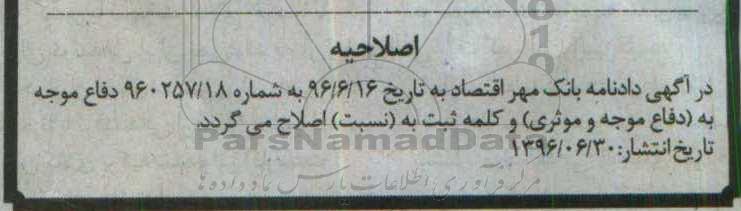 اصلاحیه
در آگهی دادنامه بانک مهر اقتصاد به تاریخ ۹۶/۶/۱۶ به شماره ۹۶۰۲۵۷/۱۸ دفاع موجه
به (دفاع موجه و موثری) و کلمه ثبت به (نسبت) اصلاح می گردد.
ParsNamadData
تاریخ انتشار: ۱۳۹۶/۰۶/۳۰
مرکز فرآوری اطلاعات پارس نماد داده ها